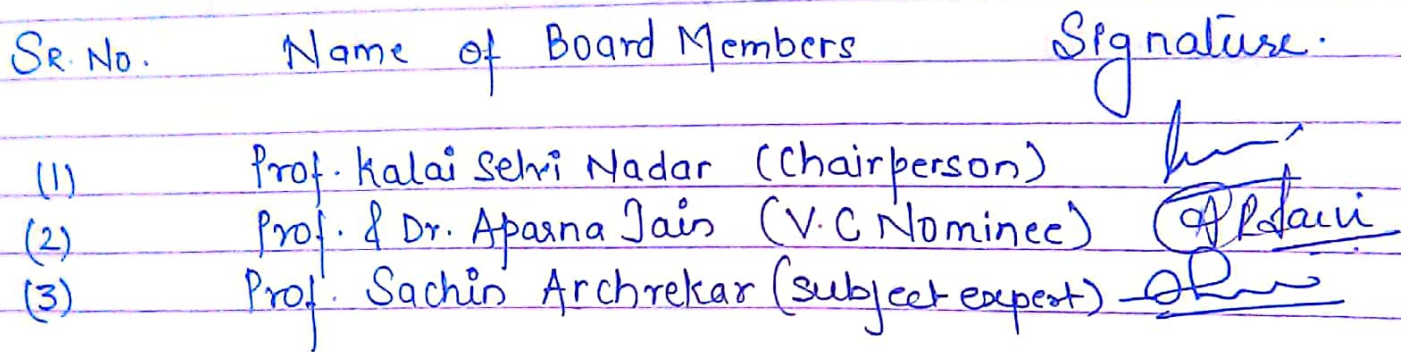 SR. No. Name of Board Members Signature.
(1) Prof. Kalai Selvi Nadar (Chairperson)
(2) Prof. & Dr. Aparna Jain (V.C Nominee) APJain
(3) Prof. Sachin Archrekar (subject expert)